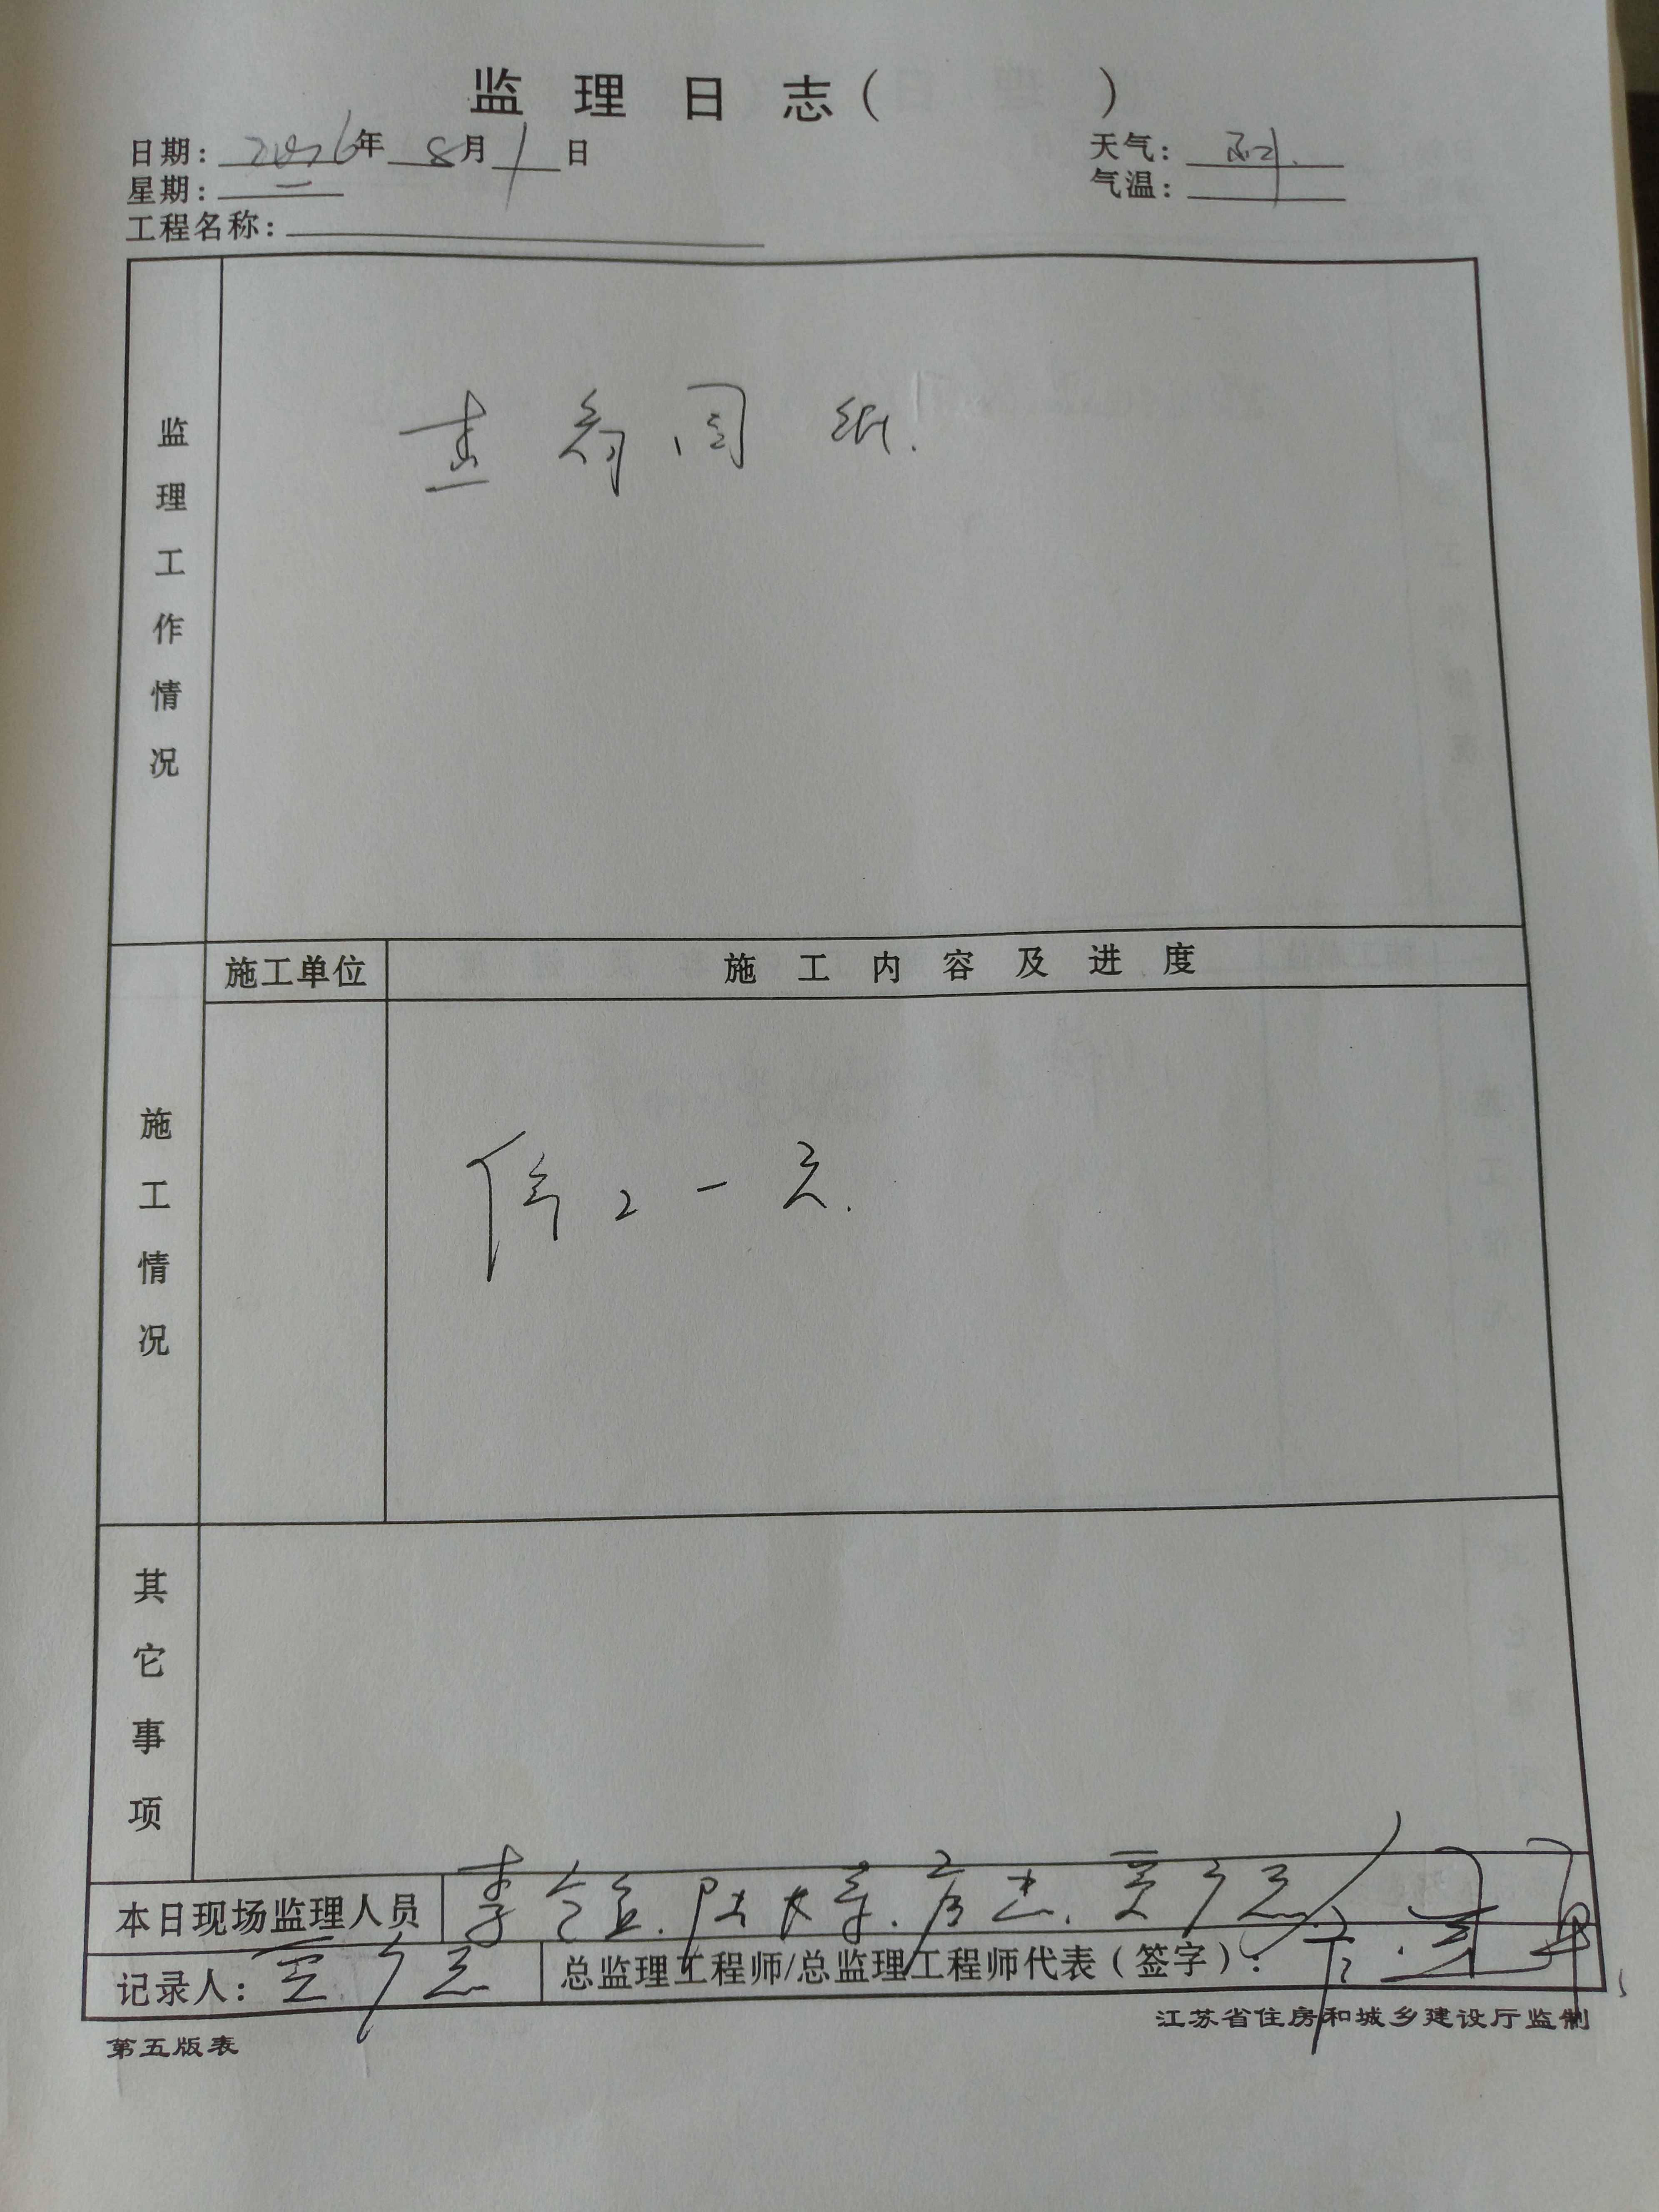 监理日志（ ）
日期： 2026年 8月 1日
天气： 雨
星期： 二
气温：
工程名称：
监理工作情况
查看图纸.
施工单位
施工内容及进度
施工情况
停工一天.
其它事项
本日现场监理人员
记录人：
总监理工程师/总监理工程师代表（签字）：
第五版表
江苏省住房和城乡建设厅监制